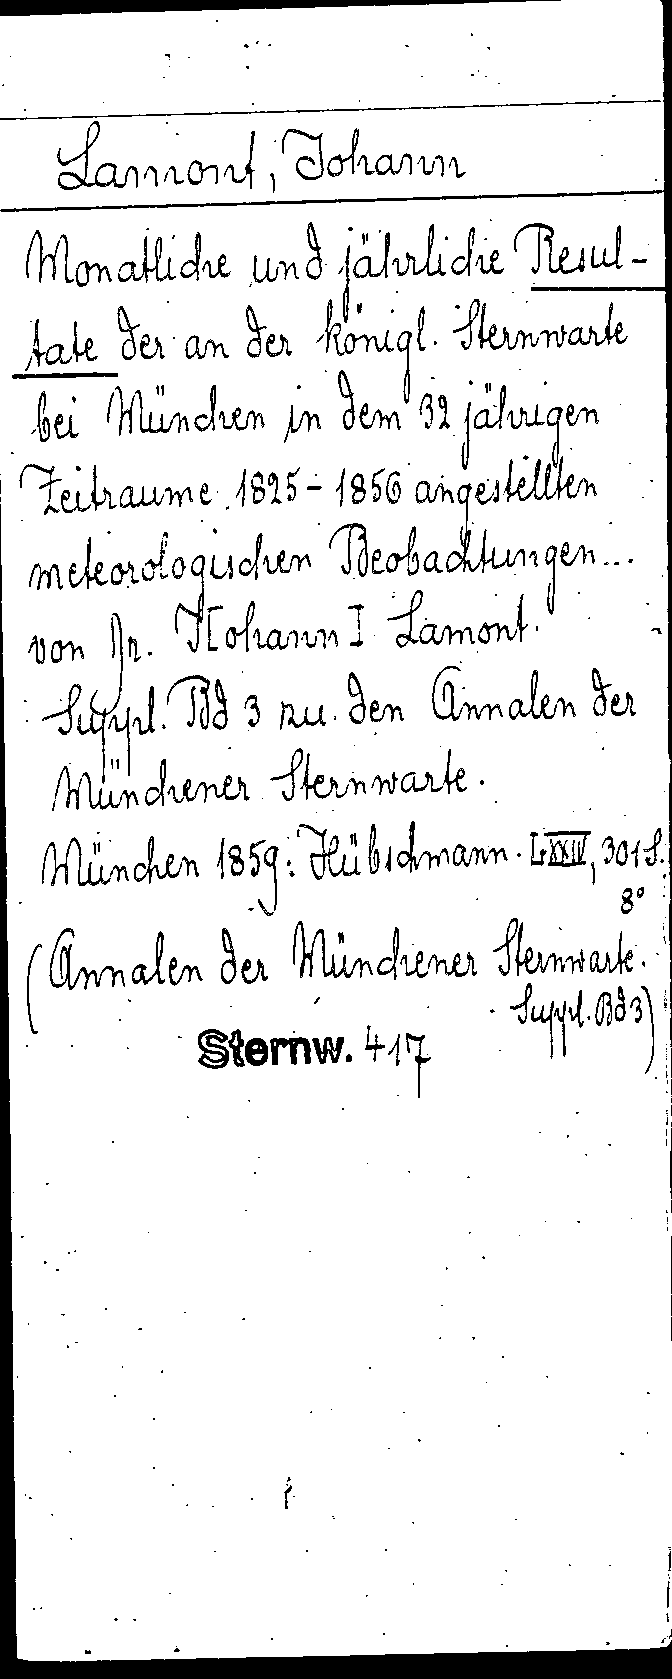 Lamont, Johann
Monatliche und jährliche Resul-
tate der an der königl. Sternwarte
bei München in dem 32 jährigen
Zeitraume 1825 - 1856 angestellten
meteorologischen Beobachtungen...
von Dr. J[ohann] Lamont.
Suppl. Bd 3 zu den Annalen der
Münchener Sternwarte.
München 1859: Hübschmann. LXXIV, 301 S.
8°
(Annalen der Münchener Sternwarte.
Suppl. Bd 3)
Sternw. 417